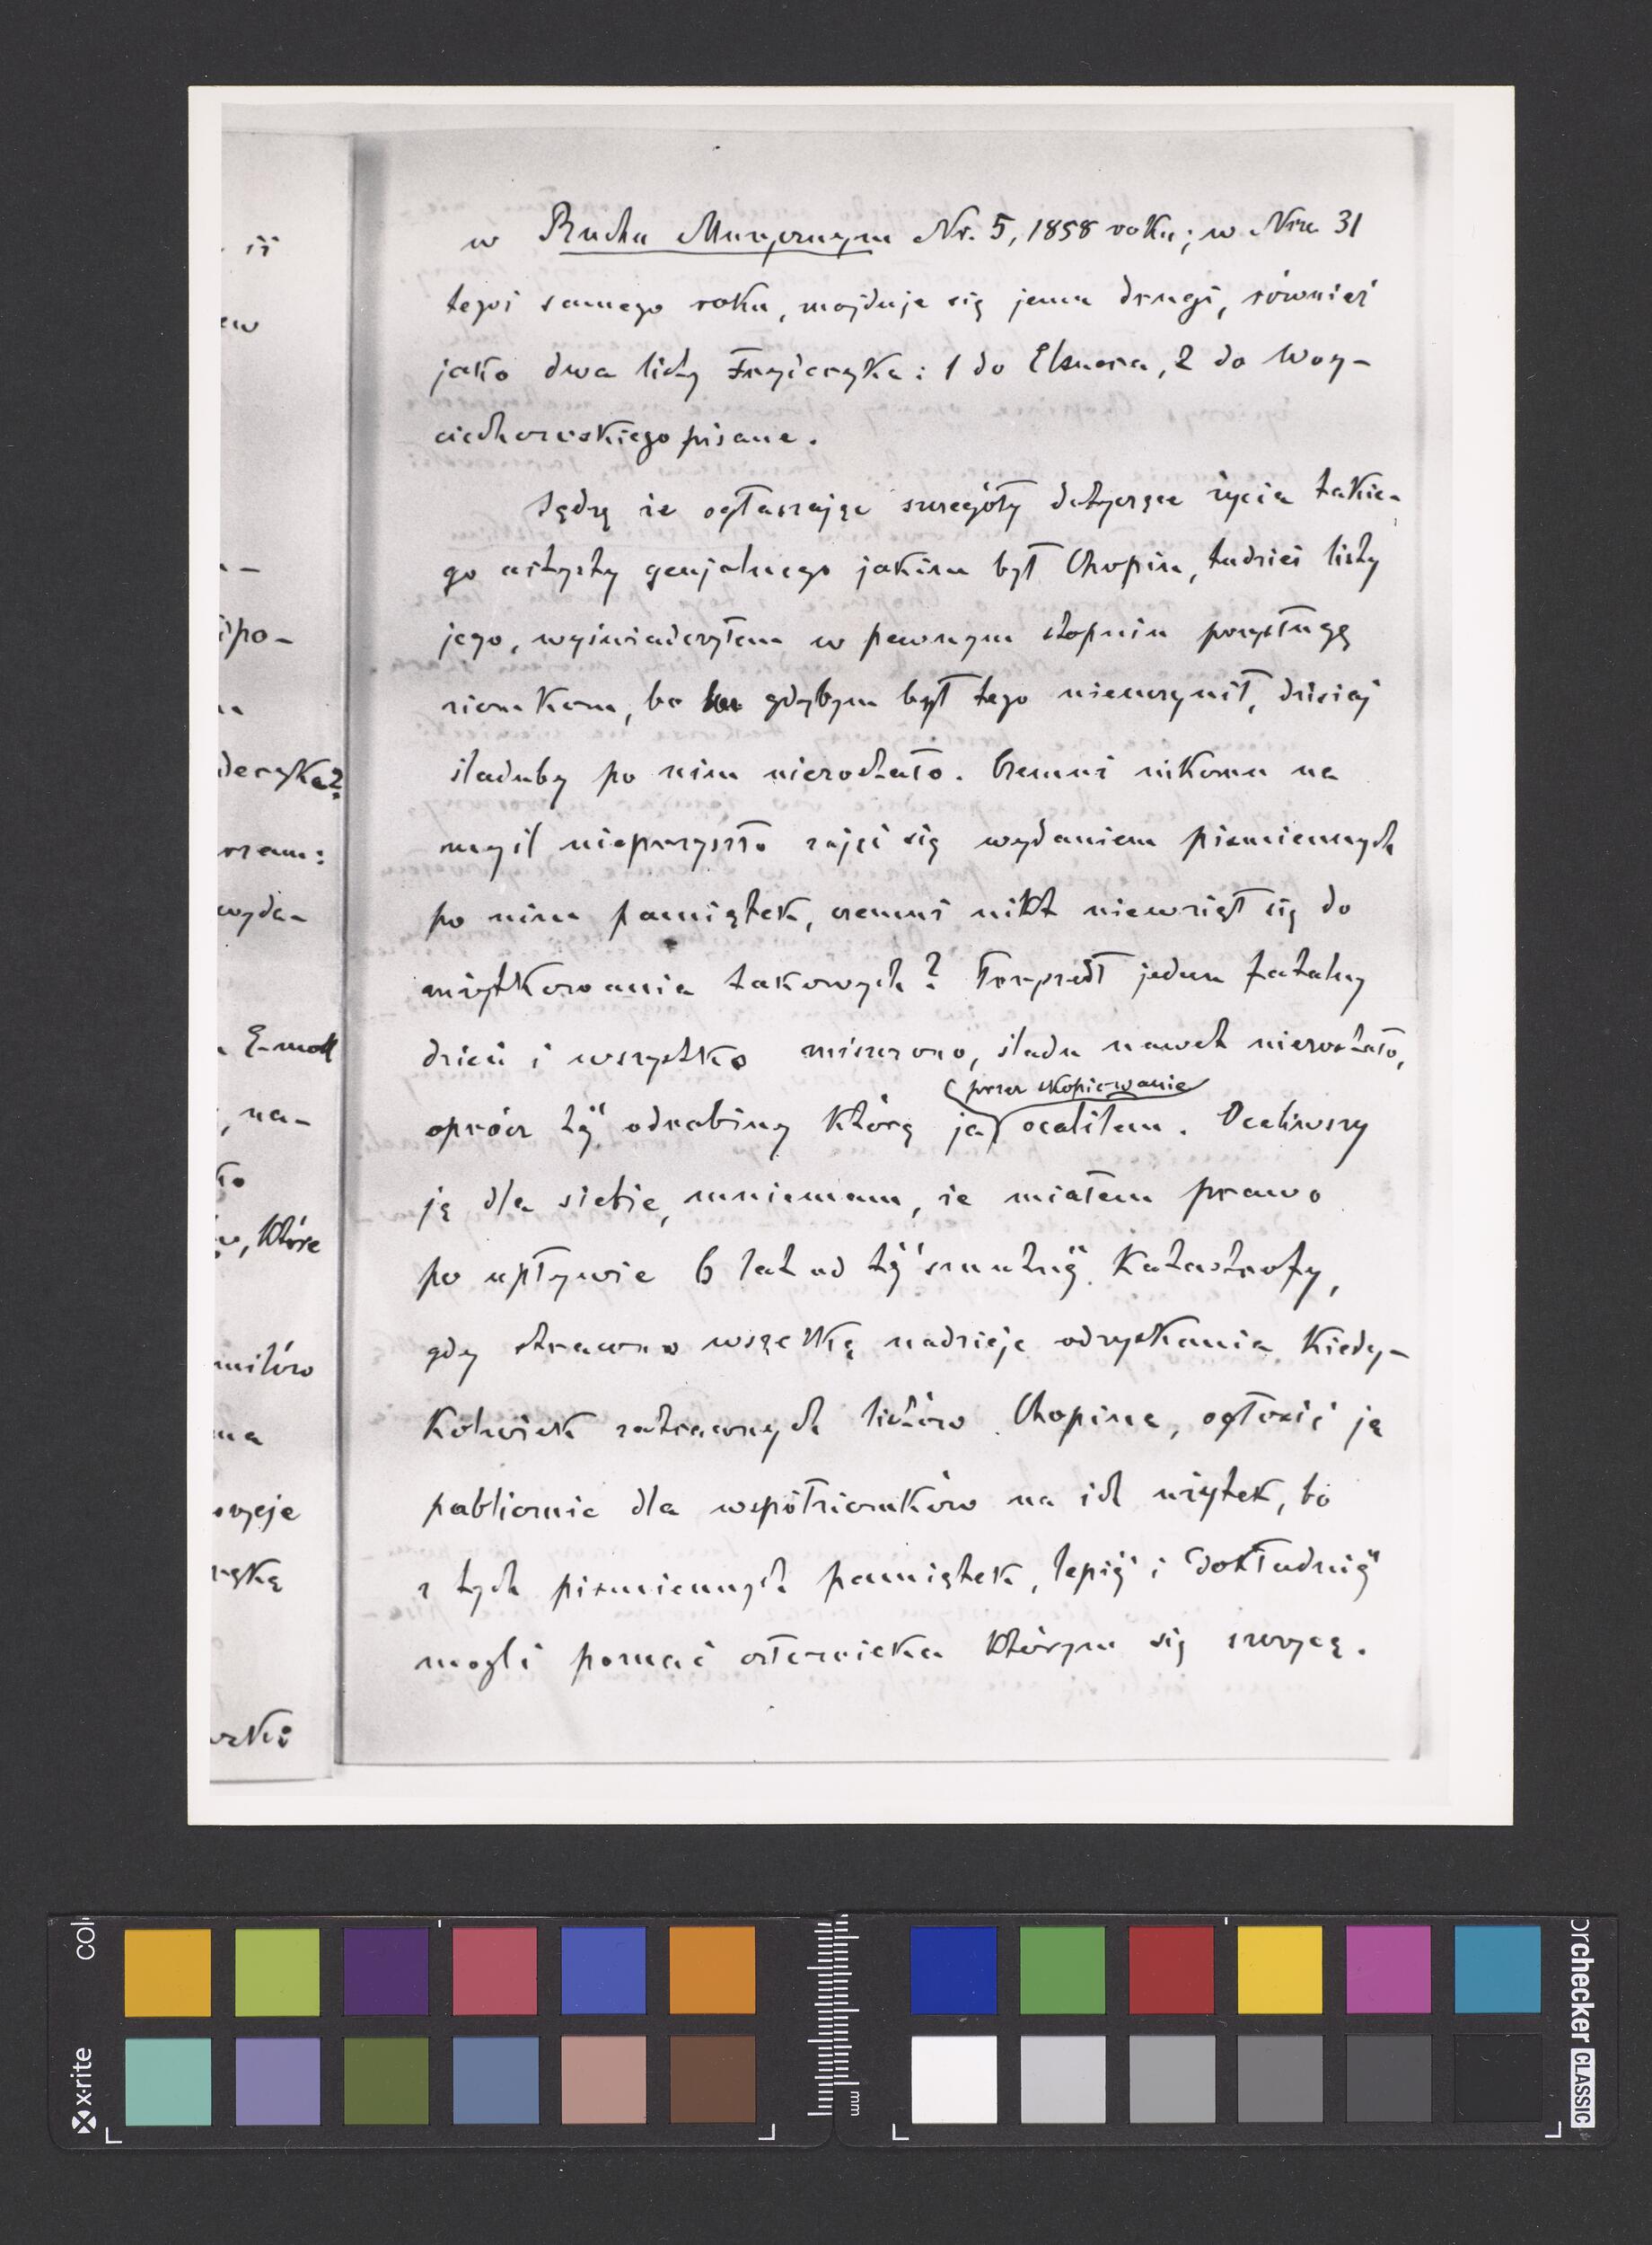 w Ruchu Muzycznym Nr. 5, 1858 roku; w Nrze 31
tegoż samego roku, znajduje się jemu drugi, również
jako dwa listy Fryderyka: 1 do Elsnera, 2 do Woy-
ciechowskiego pisane.
Sądzę że ogłaszając szczegóły dotyczące życia takie-
go artysty genjalnego jakim był Chopin, tudzież listy
jego, wyświadczyłem w pewnym stopniu przysługę
ziomkom, bo gdybym był tego nieuczynił, dzisiaj
śladuby po nim niezostało. Czemuż nikomu na
myśl nieprzyszło zająć się wydaniem piśmiennych
po nim pamiątek, czemuż nikt niewziął się do
zużytkowania takowych? Nadszedł jeden fatalny
dzień i wszystko zniszczono, śladu nawet niezostało,
przez skopiowanie
oprócz téj odrobiny którą ja ocaliłem. Ocaliwszy
ją dla siebie, mniemam, że miałem prawo
po upływie 6 lat od téj smutnéj Katastrofy,
gdy stracono wszelką nadzieję odzyskania Kiedy-
Kolwiek zatraconych listów Chopina, ogłosić ją
publicznie dla współziomków na ich użytek, bo
z tych piśmiennych pamiątek, lepiéj i dokładniéj
mogli poznać człowieka którym się szczycą.
ii
ew
-
spo-
deryka?
rzam:
wyda-
E-moll
, na-
ło
, które
milów
na
ycje
ską
rski
x-rite
col
mm
orchecker CLASSIC